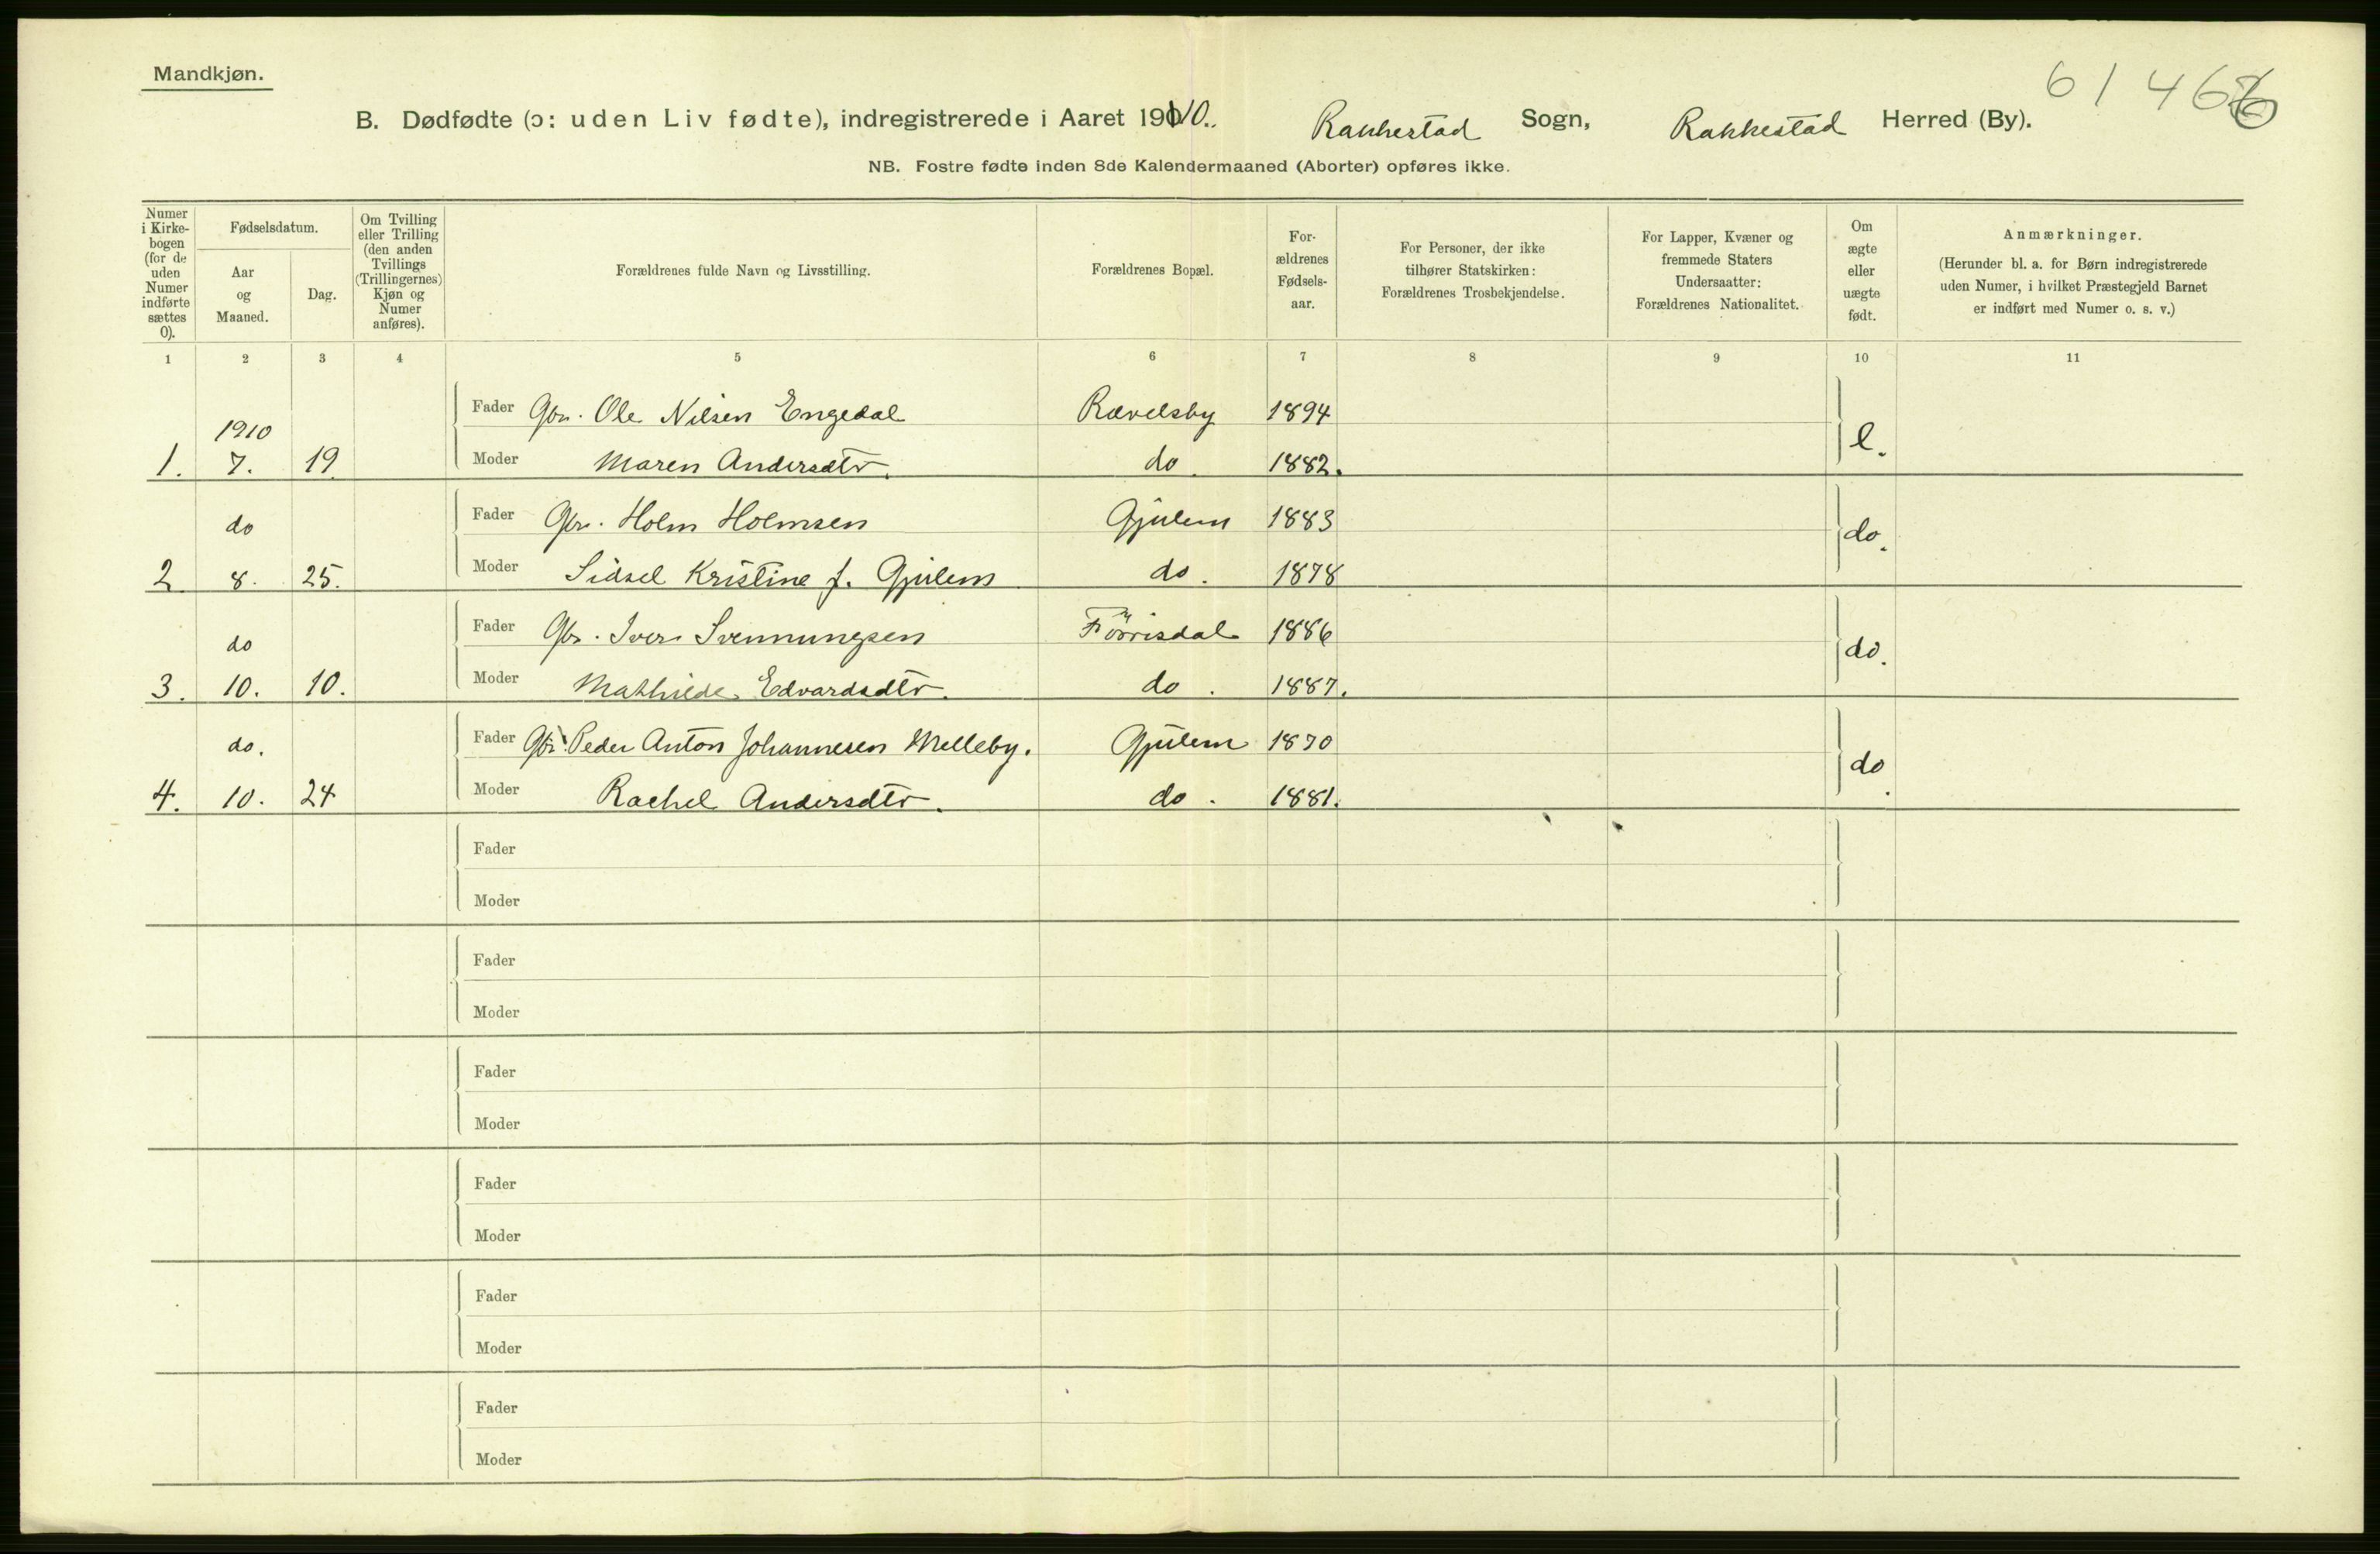 Mandkjøn.
61 466
B. Dødfødte (ɔ: uden Liv fødte), indregistrerede i Aaret 1910. Rakkestad Sogn, Rakkestad Herred (By).
NB. Fostre fødte inden 8de Kalendermaaned (Aborter) opføres ikke.
Numer i Kirke-bogen (for de uden Numer indførte sættes 0).
Fødselsdatum.
Aar og Maaned.
Dag.
Om Tvilling eller Trilling (den anden Tvillings (Trillingernes) Kjøn og Numer anføres).
Forældrenes fulde Navn og Livsstilling.
Forældrenes Bopæl.
For-ældrenes Fødsels-aar.
For Personer, der ikke tilhører Statskirken: Forældrenes Trosbekjendelse.
For Lapper, Kvæner og fremmede Staters Undersaatter: Forældrenes Nationalitet.
Om ægte eller uægte født.
Anmærkninger.
(Herunder bl. a. for Børn indregistrerede uden Numer, i hvilket Præstegjeld Barnet er indført med Numer o. s. v.)
1 2 3 4 5 6 7 8 9 10 11
1910 Fader Gbr. Ole Nilsen Engedal Rævelsby 1894
1. 7. 19. Moder Maren Andersdtr. do. 1882. e.
do Fader Gbr. Holm Holmsen Gjulem 1883
2. 8. 25. Moder Sidsel Kristine f. Gjulem do. 1878 do.
do Fader Gbr. Iver Svennungsen Förrisdal 1886
3. 10. 10. Moder Mathilde Edvardsdtr. do. 1887. do.
do. Fader Gbr. Peder Anton Johannesen Melleby. Gjulem 1870
4. 10. 24 Moder Rachel Andersdtr. do. 1881. do.
Fader
Moder
Fader
Moder
Fader
Moder
Fader
Moder
Fader
Moder
Fader
Moder